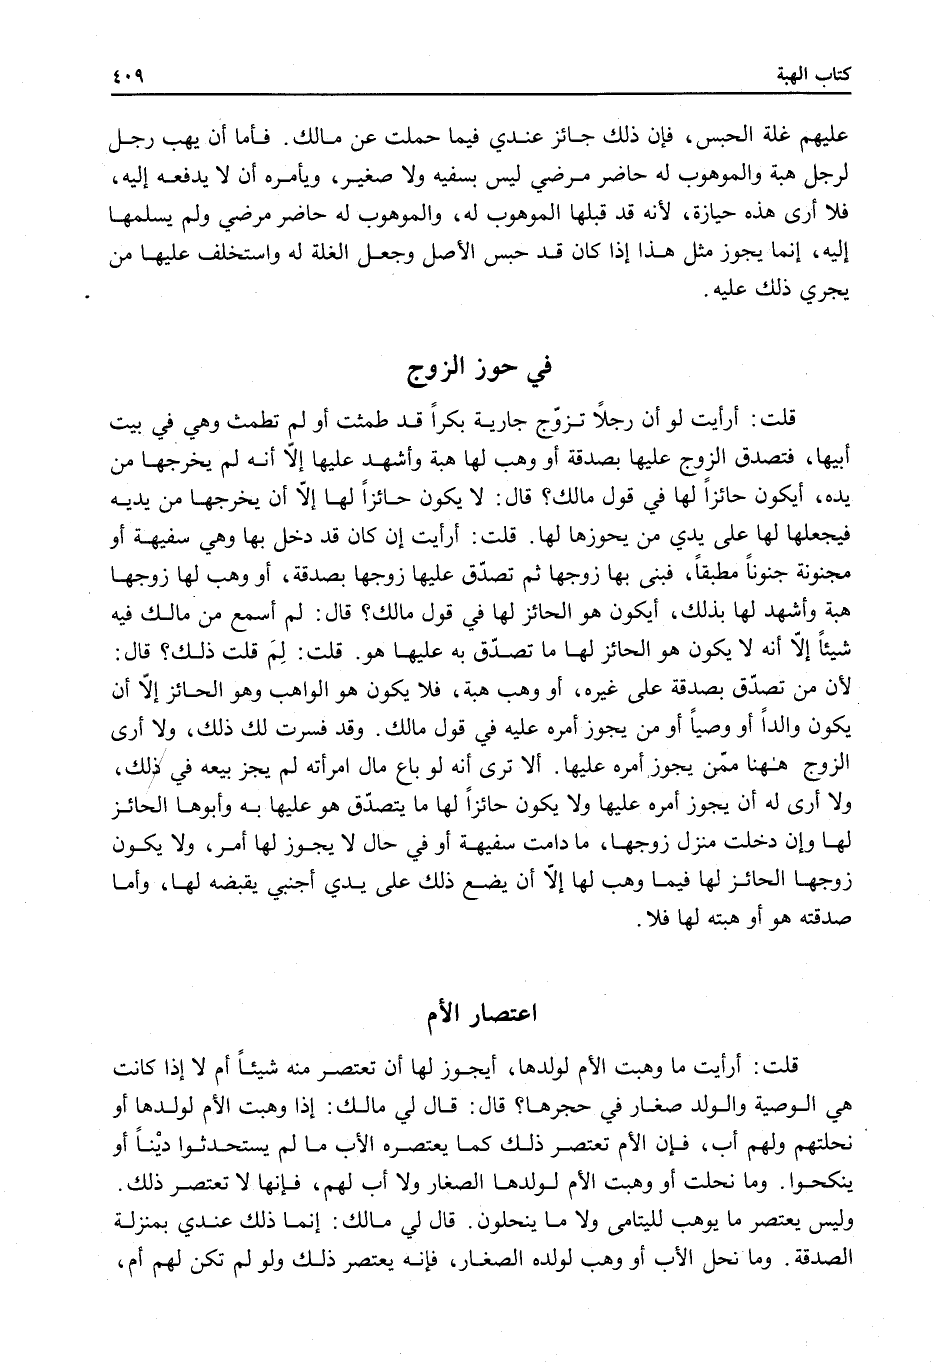 كتاب الهبة ٤٠٩
عليهم غلة الحبس، فإن ذلك جائز عندي فيما حملت عن مالك. فأما أن يهب رجل
لرجل هبة والموهوب له حاضر مرضي ليس بسفيه ولا صغير، ويأمره أن لا يدفعه إليه،
فلا أرى هذه حيازة، لأنه قد قبلها الموهوب له، والموهوب له حاضر مرضي ولم يسلمها
إليه، إنما يجوز مثل هذا إذا كان قد حبس الأصل وجعل الغلة له واستخلف عليها من
يجري ذلك عليه.
في حوز الزوج
قلت: أرأيت لو أن رجلاً تزوّج جارية بكراً قد طمثت أو لم تطمث وهي في بيت
أبيها، فتصدق الزوج عليها بصدقة أو وهب لها هبة وأشهد عليها إلاّ أنه لم يخرجها من
يده، أيكون حائزاً لها في قول مالك؟ قال: لا يكون حائزاً لها إلاّ أن يخرجها من يديه
فيجعلها لها على يدي من يحوزها لها. قلت: أرأيت إن كان قد دخل بها وهي سفيهة أو
مجنونة جنوناً مطبقاً، فبنى بها زوجها ثم تصدّق عليها زوجها بصدقة، أو وهب لها زوجها
هبة وأشهد لها بذلك، أيكون هو الحائز لها في قول مالك؟ قال: لم أسمع من مالك فيه
شيئاً إلاّ أنه لا يكون هو الحائز لها ما تصدّق به عليها هو. قلت: لِمَ قلت ذلك؟ قال:
لأن من تصدّق بصدقة على غيره، أو وهب هبة، فلا يكون هو الواهب وهو الحائز إلاّ أن
يكون والداً أو وصياً أو من يجوز أمره عليه في قول مالك. وقد فسرت لك ذلك، ولا أرى
الزوج هٰهنا ممّن يجوز أمره عليها. ألا ترى أنه لو باع مال امرأته لم يجز بيعه في ذلك،
ولا أرى له أن يجوز أمره عليها ولا يكون حائزاً لها ما يتصدّق هو عليها به وأبوها الحائز
لها وإن دخلت منزل زوجها، ما دامت سفيهة أو في حال لا يجوز لها أمر، ولا يكون
زوجها الحائز لها فيما وهب لها إلاّ أن يضع ذلك على يدي أجنبي يقبضه لها، وأما
صدقته هو أو هبته لها فلا.
اعتصار الأم
قلت: أرأيت ما وهبت الأم لولدها، أيجوز لها أن تعتصر منه شيئاً أم لا إذا كانت
هي الوصية والولد صغار في حجرها؟ قال: قال لي مالك: إذا وهبت الأم لولدها أو
نحلتهم ولهم أب، فإن الأم تعتصر ذلك كما يعتصره الأب ما لم يستحدثوا ديْناً أو
ينكحوا. وما نحلت أو وهبت الأم لولدها الصغار ولا أب لهم، فإنها لا تعتصر ذلك.
وليس يعتصر ما يوهب لليتامى ولا ما ينحلون. قال لي مالك: إنما ذلك عندي بمنزلة
الصدقة. وما نحل الأب أو وهب لولده الصغار، فإنه يعتصر ذلك ولو لم تكن لهم أم،